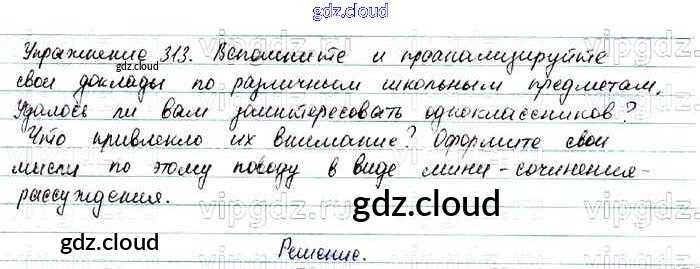 gdz.cloud
Упражнение 313. Вспомните и проанализируйте
свои доклады по различным школьным предметам.
gdz.cloud
Удалось ли вам заинтересовать одноклассников?
Что привлекло их внимание? Оформите свои
мысли по этому поводу в виде мини-сочинения-
рассуждения.
gdz.cloud
gdz.cloud
Решение.